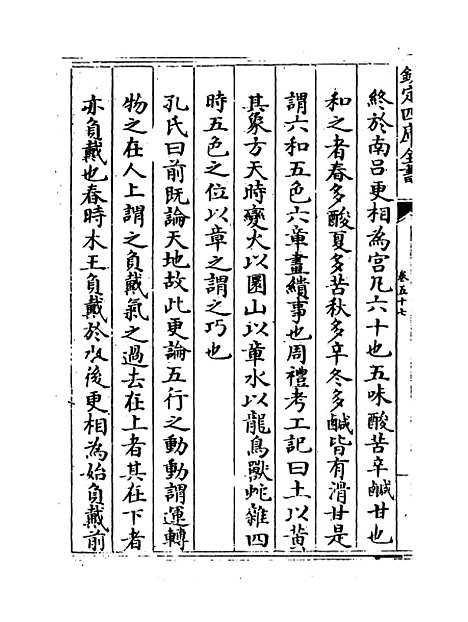 欽定四庫全書
卷五十七
終於南呂更相為宮凡六十也五味酸苦辛鹹甘也
和之者春多酸夏多苦秋多辛冬多鹹皆有滑甘是
謂六和五色六章畫繢事也周禮考工記曰土以黃
其象方天時變火以圜山以章水以龍鳥獸蛇雜四
時五色之位以章之謂之巧也
孔氏曰前既論天地故此更論五行之動動謂運轉
物之在人上謂之負戴氣之過去在上者其在下者
亦負戴也春時木王負戴於水後更相為始負戴前